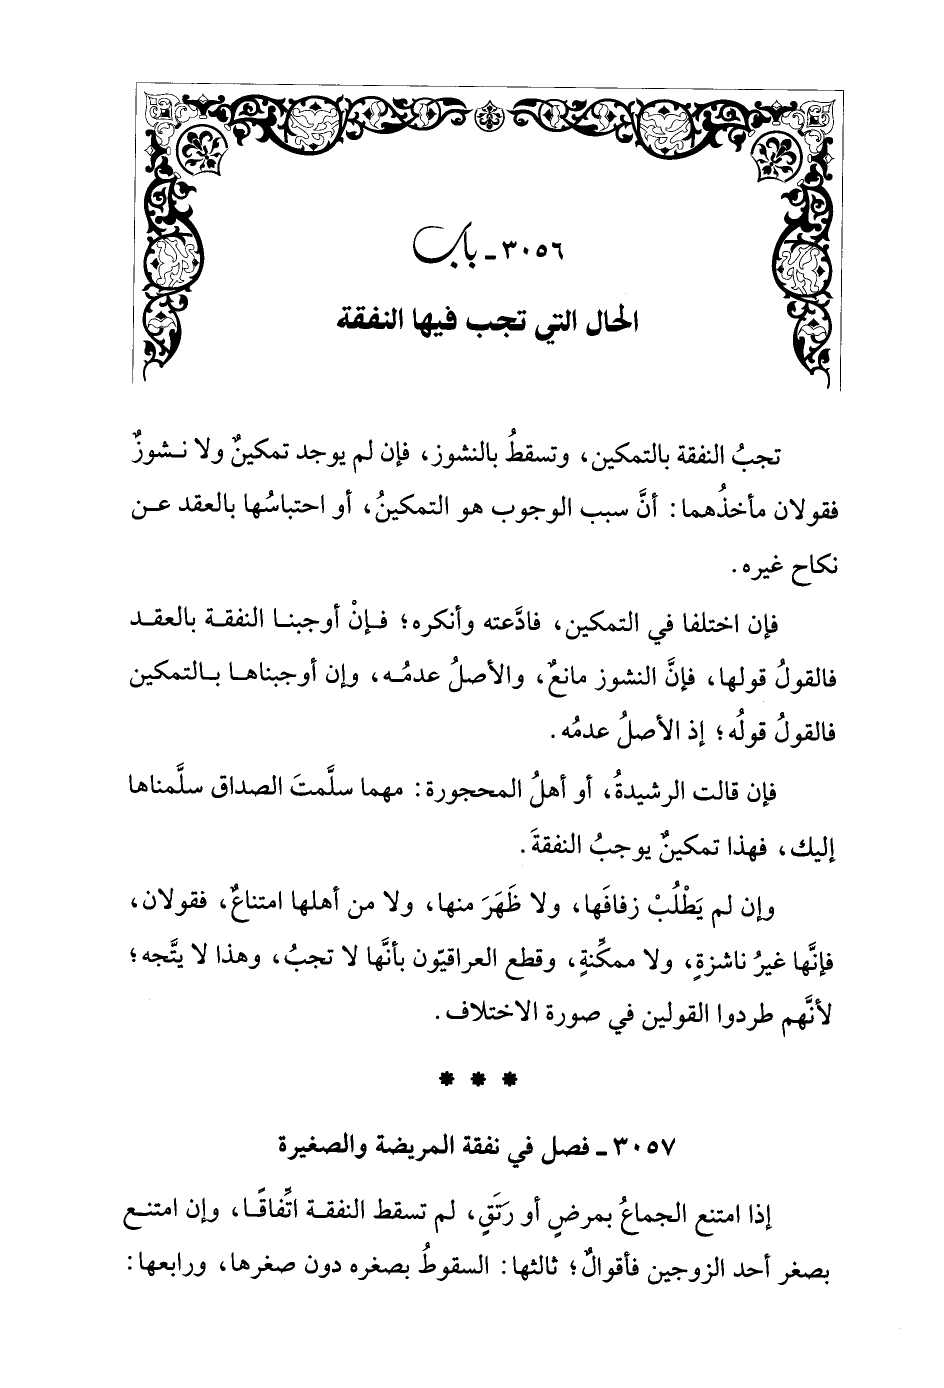 ٣٠٥٦ - باب
الحال التي تجب فيها النفقة
تجبُ النفقة بالتمكين، وتسقطُ بالنشوز، فإن لم يوجد تمكينٌ ولا نشوزٌ
فقولان مأخذُهما: أنَّ سبب الوجوب هو التمكينُ، أو احتباسُها بالعقد عن
نكاح غيره.
فإن اختلفا في التمكين، فادَّعته وأنكره؛ فإنْ أوجبنا النفقة بالعقد
فالقولُ قولها، فإنَّ النشوز مانعٌ، والأصلُ عدمُه، وإن أوجبناها بالتمكين
فالقولُ قولُه؛ إذ الأصلُ عدمُه.
فإن قالت الرشيدةُ، أو أهلُ المحجورة: مهما سلَّمتَ الصداق سلَّمناها
إليك، فهذا تمكينٌ يوجبُ النفقةَ.
وإن لم يَطْلُبْ زفافَها، ولا ظَهَرَ منها، ولا من أهلها امتناعٌ، فقولان،
فإنَّها غيرُ ناشزةٍ، ولا ممكِّنةٍ، وقطع العراقيّون بأنَّها لا تجبُ، وهذا لا يتَّجه؛
لأنَّهم طردوا القولين في صورة الاختلاف.
* * *
٣٠٥٧ - فصل في نفقة المريضة والصغيرة
إذا امتنع الجماعُ بمرضٍ أو رَتَقٍ، لم تسقط النفقة اتِّفاقًا، وإن امتنع
بصغر أحد الزوجين فأقوالٌ؛ ثالثها: السقوطُ بصغره دون صغرها، ورابعها: